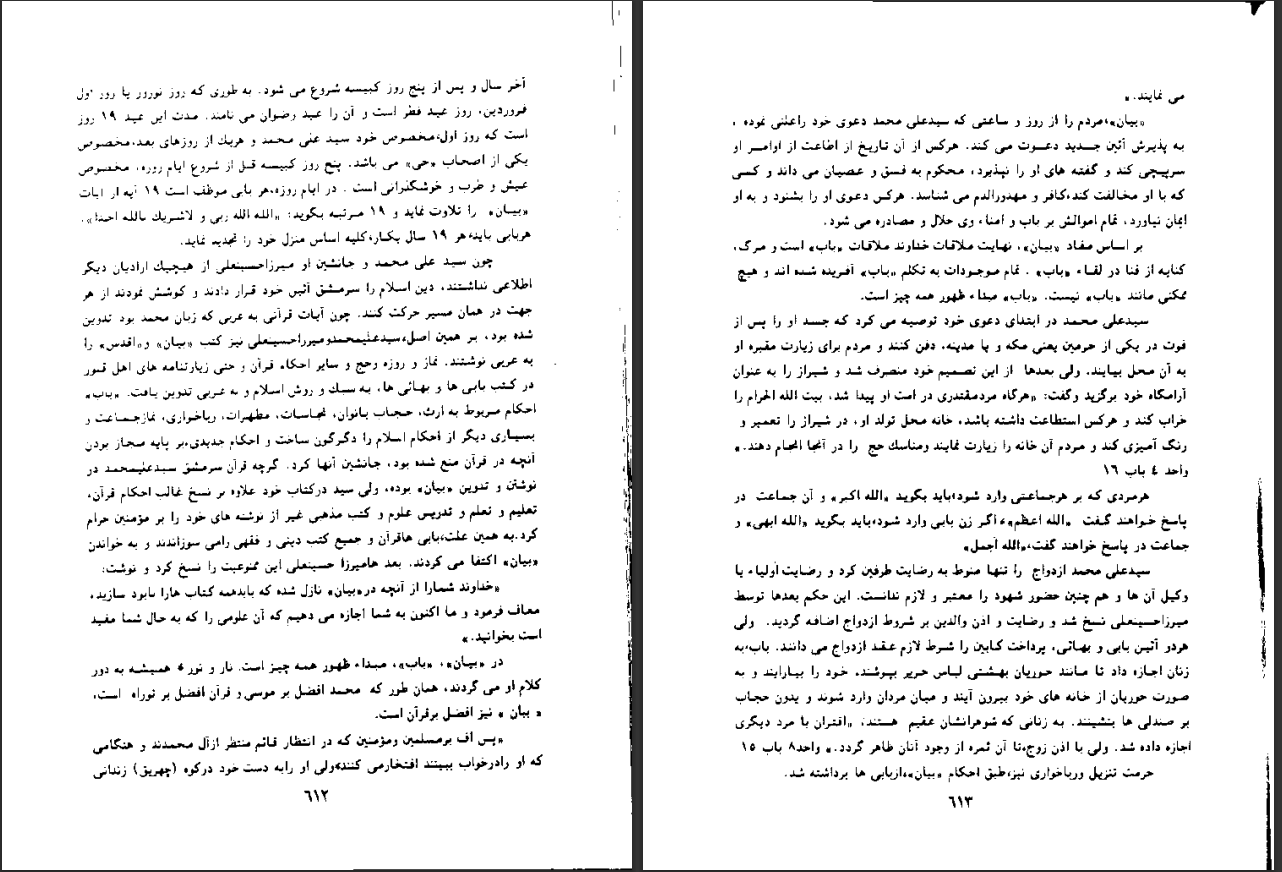 آخر سال و پس از پنج روز کبیسه شروع می شود. به طوری که روز نوروز یا روز اول
فروردین، روز عید فطر است و آن را عید رضوان می نامند. مدت این عید ۱۹ روز
است که روز اول،مخصوص خود سید علی محمد و هریک از روزهای بعد،مخصوص
یکی از اصحاب «حی» می باشد. پنج روز کبیسه قبل از شروع ایام روزه، مخصوص
عیش و طرب و خوشگذرانی است . در ایام روزه،هر بابی موظف است ۱۹ آیه از آیات
«بیان» را تلاوت نماید و ۱۹ مرتبه بگوید: «الله الله ربی و لاشریك بالله احدا».
هربابی باید،هر ۱۹ سال یکبار،کلیه اساس منزل خود را تجدید نماید.
چون سید علی محمد و جانشین او میرزاحسینعلی از هیچیك ازادیان دیگر
اطلاعی نداشتند، دین اسلام را سرمشق آئین خود قرار دادند و کوشش نمودند از هر
جهت در همان مسیر حرکت کنند. چون آیات قرآنی به عربی که زبان محمد بود تدوین
شده بود، بر همین اصل،سیدعلیمحمدومیرزاحسینعلی نیز کتب «بیان» و«اقدس» را
به عربی نوشتند. نماز و روزه وحج و سایر احکام قرآن و حتی زیارتنامه های اهل قبور
در کتب بابی ها و بهائی ها، به سبك و روش اسلام و به عربی تدوین یافت. «باب»
احکام مربوط به ارث، حجاب بانوان، نجاسات، مطهرات، رباخواری، نمازجماعت و
بسیاری دیگر از احکام اسلام را دگرگون ساخت و احکام جدیدی،بر پایه مجاز بودن
آنچه در قرآن منع شده بود، جانشین آنها کرد. گرچه قرآن سرمشق سیدعلیمحمد در
نوشتن و تدوین «بیان» بوده، ولی سید درکتاب خود علاوه بر نسخ غالب احکام قرآن،
تعلیم و تعلم و تدریس علوم و کتب مذهبی غیر از نوشته های خود را بر مؤمنین حرام
کرد.به همین علت،بابی هاقرآن و جمیع کتب دینی و فقهی رامی سوزاندند و به خواندن
«بیان» اکتفا می کردند. بعد هامیرزا حسینعلی این ممنوعیت را نسخ کرد و نوشت:
«خداوند شمارا از آنچه در«بیان» نازل شده که بایدهمه کتاب هارا نابود سازید،
معاف فرمود و ما اکنون به شما اجازه می دهیم که آن علومی را که به حال شما مفید
است بخوانید.»
در «بیان»، «باب»، مبداء ظهور همه چیز است. نار و نور ٤ همیشه به دور
کلام او می گردند، همان طور که محمد افضل بر موسی و قرآن افضل بر توراه است،
« بیان » نیز افضل برقرآن است.
«پس اف برمسلمین ومؤمنین که در انتظار قائم منتظر ازآل محمدند و هنگامی
که او رادرخواب ببینند افتخارمی کنند»ولی او رابه دست خود درکوه (چهریق) زندانی
٦١٢
می نمایند.»
«بیان»،مردم را از روز و ساعتی که سیدعلی محمد دعوی خود راعلنی نموده ،
به پذیرش آئین جدید دعوت می کند. هرکس از آن تاریخ از اطاعت از اوامر او
سرپیچی کند و گفته های او را نپذیرد، محکوم به فسق و عصیان می داند و کسی
که با او مخالفت کند،کافر و مهدورالدم می شناسد. هرکس دعوی او را بشنود و به او
ایمان نیاورد، تمام اموالش بر باب و امناء وی حلال و مصادره می شود.
بر اساس مفاد «بیان»، نهایت ملاقات خداوند ملاقات «باب» است و مرگ،
کنایه از فنا در لقاء «باب» . تمام موجودات به تکلم «باب» آفریده شده اند و هیچ
ممکنی مانند «باب» نیست. «باب» مبداء ظهور همه چیز است.
سیدعلی محمد در ابتدای دعوی خود توصیه می کرد که جسد او را پس از
فوت در یکی از حرمین یعنی مکه و یا مدینه، دفن کنند و مردم برای زیارت مقبره او
به آن محل بیایند، ولی بعدها از این تصمیم خود منصرف شد و شیراز را به عنوان
آرامگاه خود برگزید وگفت: «هرگاه مردمقتدری در امت او پیدا شد، بیت الله الحرام را
خراب کند و هرکس استطاعت داشته باشد، خانه محل تولد او، در شیراز را تعمیر و
رنگ آمیزی کند و مردم آن خانه را زیارت نمایند ومناسك حج را در آنجا انجام دهند.»
واحد ٤ باب ١٦
هرمردی که بر هرجماعتی وارد شود،باید بگوید «الله اکبر» و آن جماعت در
پاسخ خواهند گفت «الله اعظم»، اگر زن بابی وارد شود،باید بگوید «الله ابهی» و
جماعت در پاسخ خواهند گفت،«الله اجمل»
سیدعلی محمد ازدواج را تنها منوط به رضایت طرفین کرد و رضایت اولیاء یا
وکیل آن ها و هم چنین حضور شهود را معتبر و لازم ندانست. این حکم بعدها توسط
میرزاحسینعلی نسخ شد و رضایت و اذن والدین بر شروط ازدواج اضافه گردید. ولی
هردو آئین بابی و بهائی، پرداخت کابین را شرط لازم عقد ازدواج می دانند. باب،به
زنان اجازه داد تا مانند حوریان بهشتی لباس حریر بپوشند، خود را بیارایند و به
صورت حوریان از خانه های خود بیرون آیند و میان مردان وارد شوند و بدون حجاب
بر صندلی ها بنشینند. به زنانی که شوهرانشان عقیم هستند، «اقتران با مرد دیگری
اجازه داده شد. ولی با اذن زوج،تا آن ثمره از وجود آنان ظاهر گردد.» واحد۸ باب ١٥
حرمت تنزیل ورباخواری نیز،طبق احکام «بیان»،ازبابی ها برداشته شد.
٦١٣